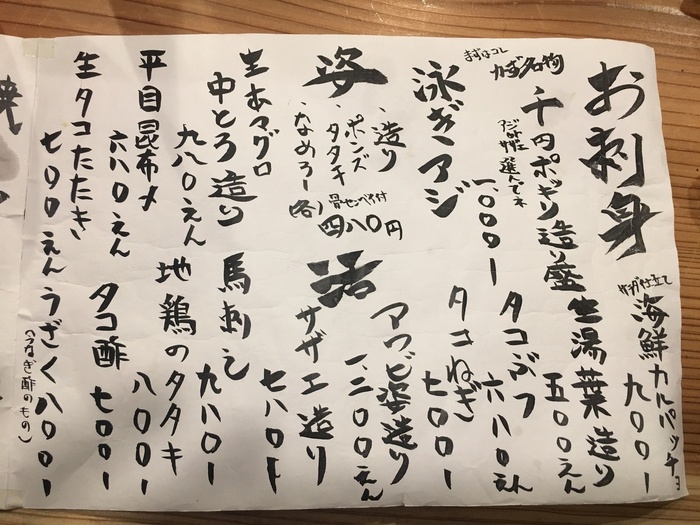 お刺身
まずはコレ
かず名物
千円ポギリ造り盛
一,〇〇〇ー
泳ぎアジ
姿
・造り
・ポンズ
・タタキ
・なめろー
(各)骨センベイ付
四八〇円
生本マグロ
中とろ造り
九八〇えん
平目昆布〆
六八〇えん
生タコたたき
七〇〇えん
海鮮カルパッチョ
九〇〇ー
生湯葉造り
五〇〇えん
タコぶつ
六八〇えん
タコねぎ
七〇〇ー
活
アワビ姿造り
一,二〇〇えん
サザエ造り
七八〇ー
馬刺し
九八〇ー
地鶏のタタキ
八〇〇ー
タコ酢
七〇〇ー
うざく八〇〇ー
(うなぎ酢のもの)
焼